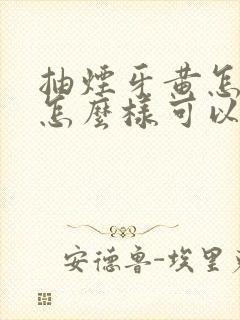 抽煙牙黃怎
怎麼樣可以
安德魯-埃里